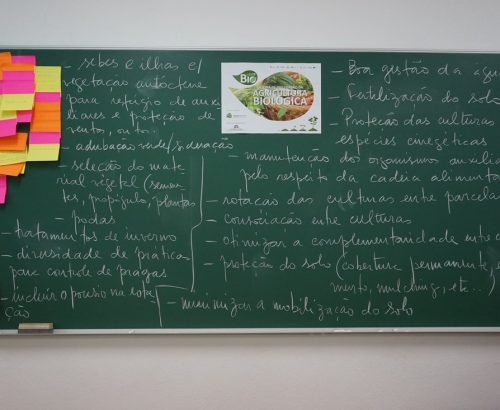 - sebes e ilhas c/
vegetação autóctone
para refúgio de auxi
liares e proteção de
vento, outro.
- adubação verde/sideração
- seleção do mate
rial vegetal (semen
tes, propágulo, plantas
- podas
- tratamentos de inverno
- diversidade de práticas
para controle de pragas
- incluir o pousio na rota
ção
Bio
AGRICULTURA
BIOLÓGICA
- Boa gestão da água
- Fertilização do solo
- Proteção das culturas
espécies cinegéticas
- manutenção dos organismos auxiliares
pelo respeito da cadeia alimentar
- rotação das culturas entre parcelas
- consociação entre culturas
- otimizar a complementaridade entre
- proteção do solo (cobertura permanente,
mento, mulching, etc...)
- minimizar a mobilização do solo